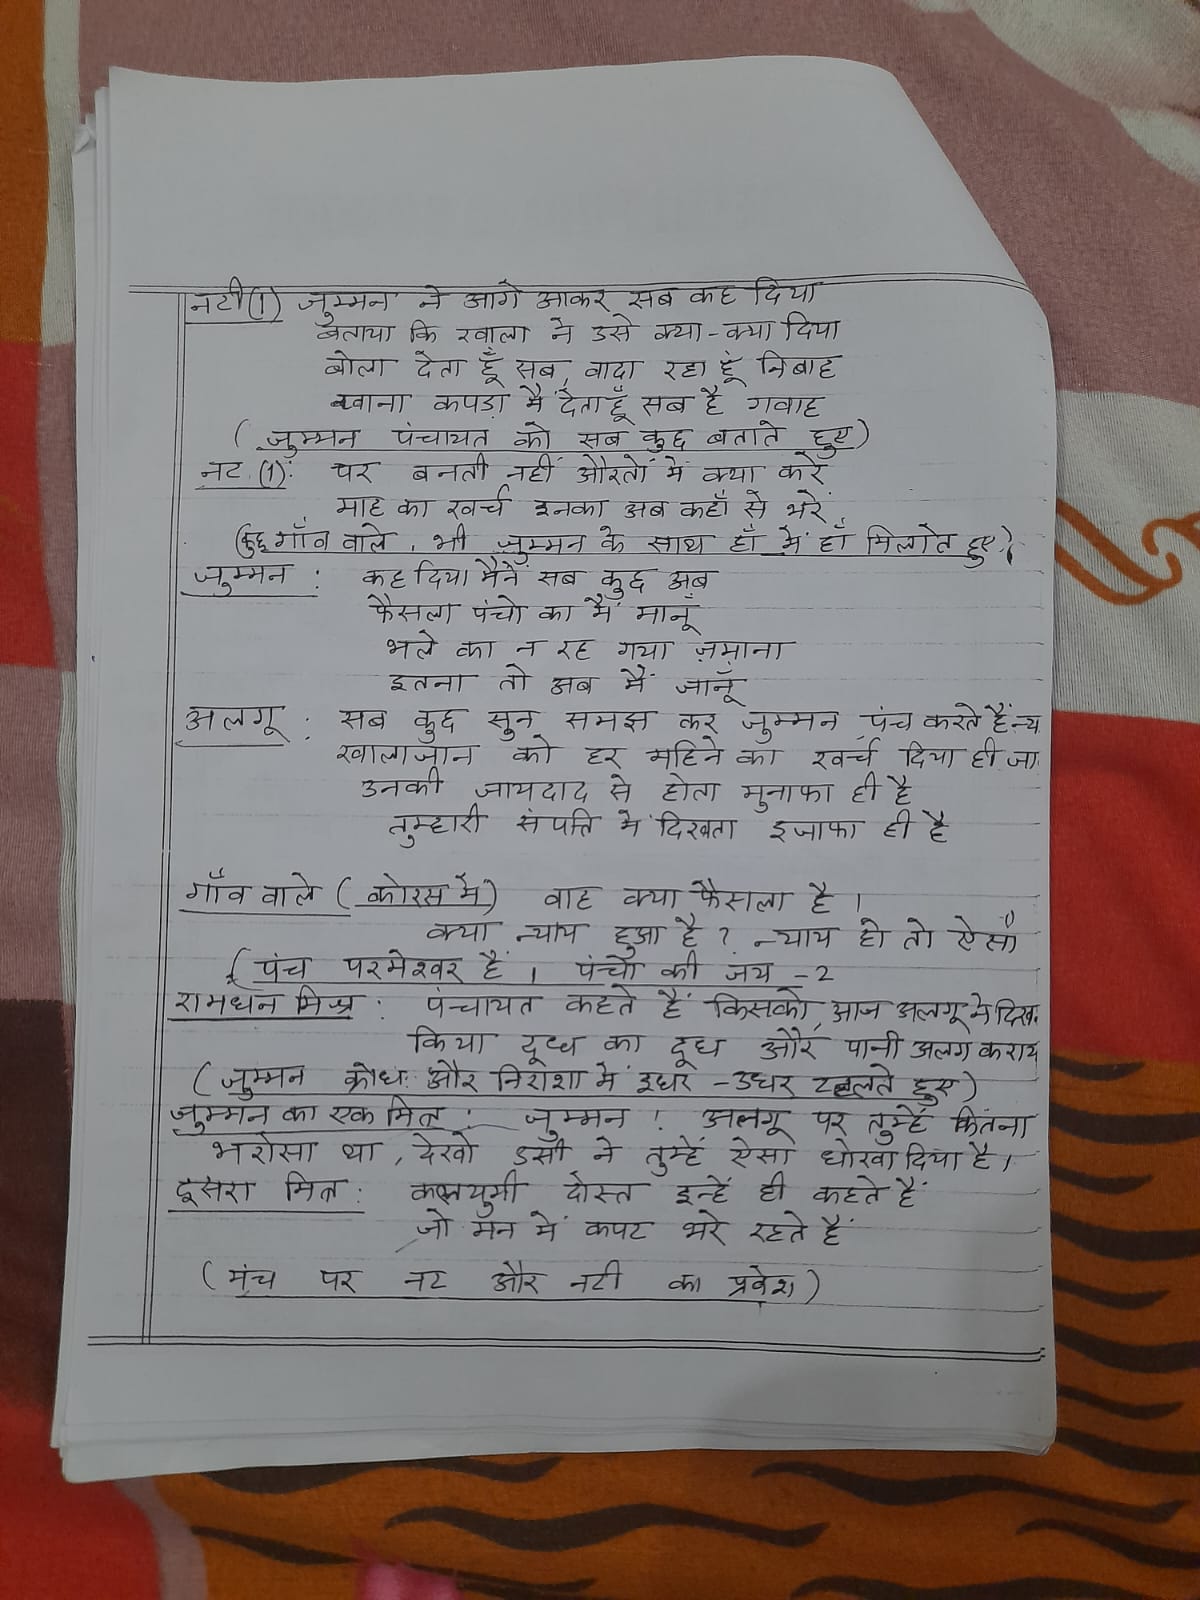 नटी(1) जुम्मन ने आगे आकर सब कह दिया
बताया कि खाला ने उसे क्या-क्या दिया
बोला देता हूँ सब, वादा रहा हूं निबाह
खाना कपड़ा मैं देता हूँ सब है गवाह
(जुम्मन पंचायत को सब कुछ बताते हुए)
नट (1): पर बनती नहीं औरतों में क्या करें
माह का खर्च इनका अब कहाँ से भरें
(कुछ गाँव वाले भी जुम्मन के साथ हाँ में हाँ मिलाते हुए)
जुम्मन : कह दिया मैंने सब कुछ अब
फैसला पंचो का मैं मानूँ
भले का न रह गया ज़माना
इतना तो अब मैं जानूँ
अलगू : सब कुछ सुन समझ कर जुम्मन पंच करते हैं
खालाजान को हर महिने का खर्च दिया ही
उनकी जायदाद से होता मुनाफा ही है
तुम्हारी संपत्ति में दिखता इजाफा ही है
गाँव वाले (कोरस में) वाह क्या फैसला है।
क्या न्याय हुआ है? न्याय हो तो ऐसा
(पंच परमेश्वर हैं। पंचों की जय -2
रामधन मिश्र : पंचायत कहते हैं किसको, आज अलगू ने
किया दूध का दूध और पानी अलग
(जुम्मन क्रोध और निराशा में इधर-उधर टहलते हुए)
जुम्मन का एक मित्र : जुम्मन! अलगू पर तुम्हें कितना
भरोसा था, देखो उसी ने तुम्हें ऐसा धोखा दिया है।
दूसरा मित्र : कलयुगी दोस्त इन्हें ही कहते हैं
जो मन में कपट भरे रहते हैं
(मंच पर नट और नटी का प्रवेश)